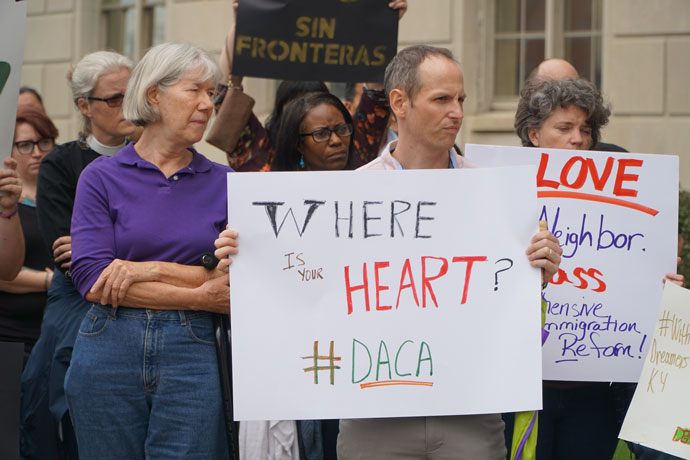 SIN
FRONTERAS
WHERE
IS YOUR
HEART?
#DACA
LOVE
Neighbor.
Immigration
Reform!
Dreamers
KY